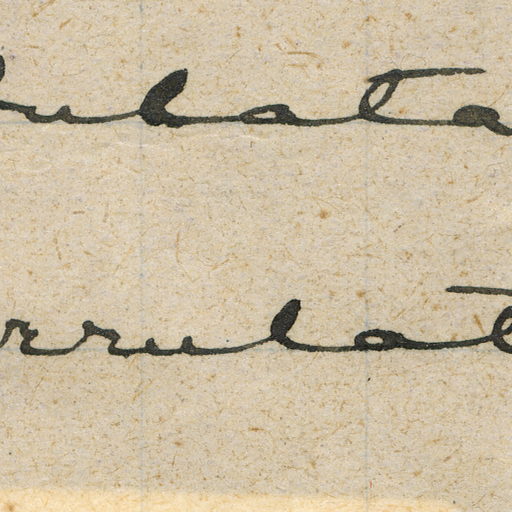 ulata
rrulat